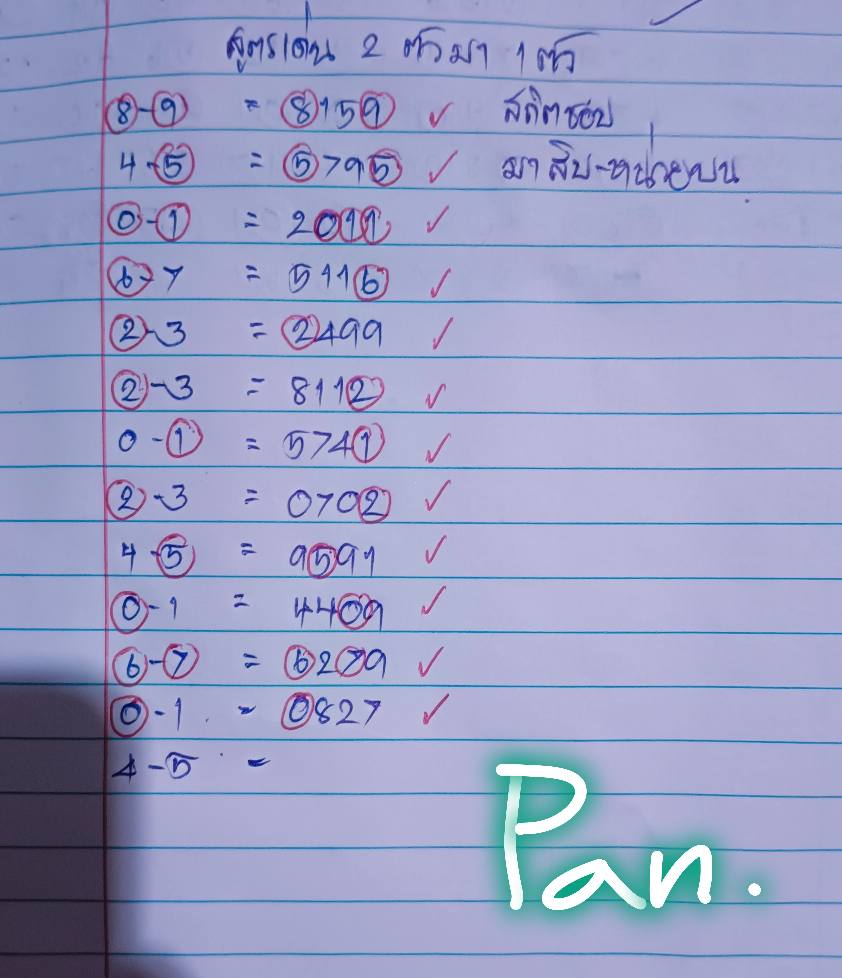 สูตรเด่น 2 ตัวมา 1 ตัว
8-9 = 8159 ✓ สถิตชอบ
4-5 = 5795 ✓ มาสิบ-หน่วยบน
0-1 = 2011 ✓
6-7 = 5116 ✓
2-3 = 2499 ✓
2-3 = 8112 ✓
0-1 = 5741 ✓
2-3 = 0702 ✓
4-5 = 9591 ✓
0-1 = 4409 ✓
6-7 = 6279 ✓
0-1 = 0827 ✓
4-5 =
Pan.